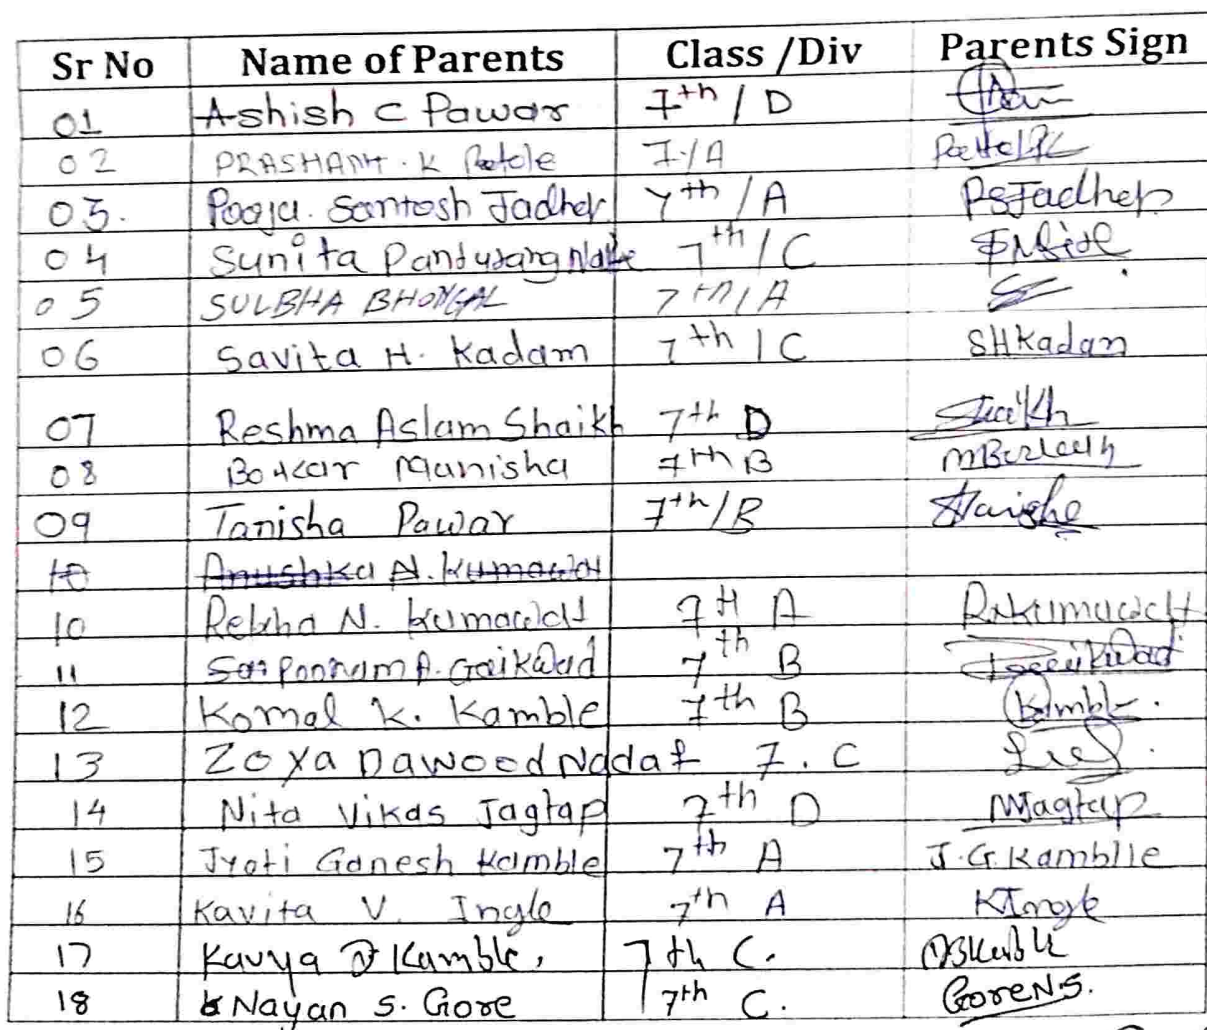 Sr No Name of Parents Class /Div Parents Sign
01 Ashish C Pawar 7th / D
02 PRASHANT . K Patole 7/A
03. Pooja. Santosh Jadhav 7th / A PSJadhav
04 Sunita Pandurang 7th / C
05 SULBHA BHONGAL 7th/A
06 Savita H. Kadam 7th / C SHKadam
07 Reshma Aslam Shaikh 7th D Shaikh
08 Manisha 7th B
09 Tanisha Pawar 7th/B
10 Anushka N. Kumawat
10 Rekha N. Kumawat 7th A R.N.Kumawat
11 Poonam A. Gaikwad 7th B Gaikwad
12 Komal K. Kamble 7th B Kamble.
13 Zoya Dawood Nadaf 7. C
14 Nita Vikas Jagtap 7th D NVJagtap
15 Jyoti Ganesh Kamble 7th A J.G.Kamblle
16 Kavita V. Ingle 7th A KIngle
17 Kavya Kamble. 7th C.
18 Nayan S. Gore 7th C. GoreN.S.